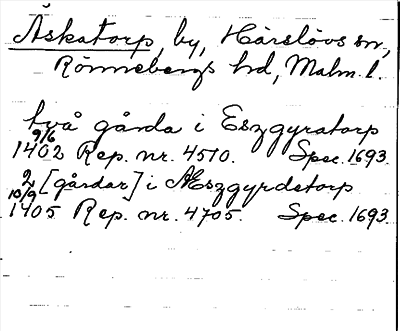 Äskatorp, by, Härslövs sn,
Rönnebergs hd, Malm. l.
två gårda i Eszgyratorp
9/6
1402 Rep. nr. 4510. Spec. 1693.
2 [gårdar] i Æszgyrdetorp
10/9
1405 Rep. nr. 4705. Spec. 1693.